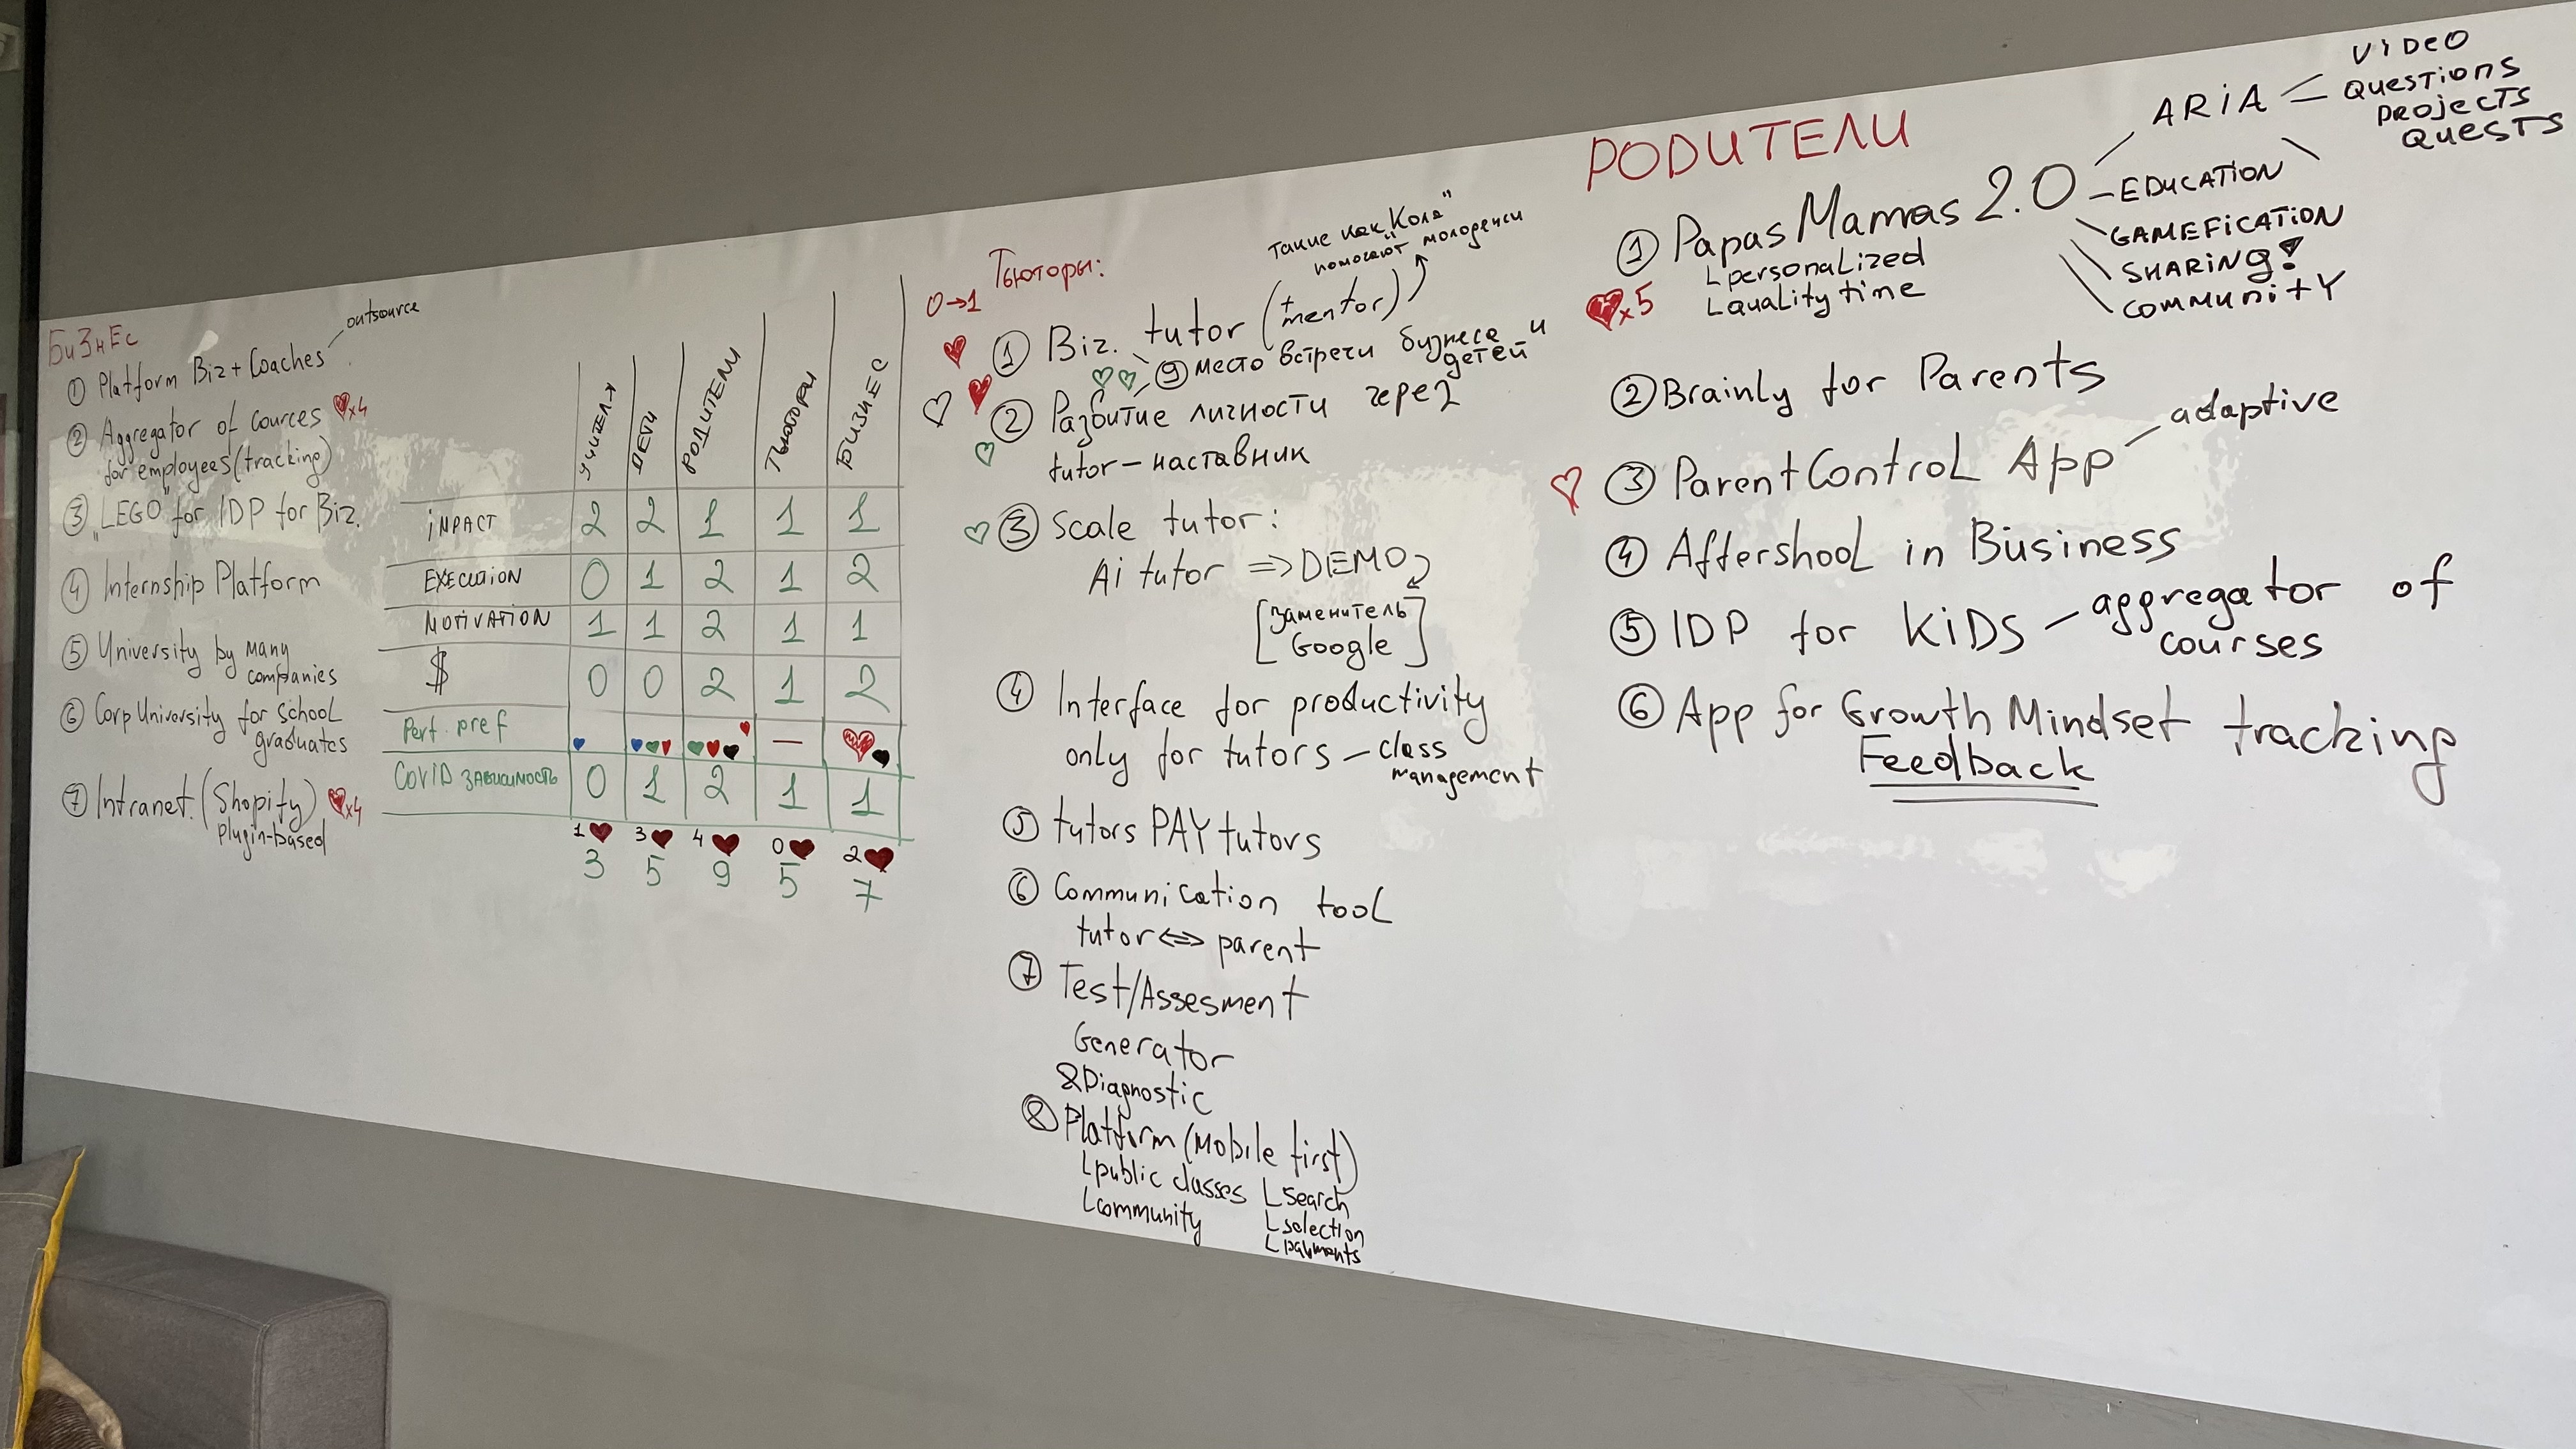 Бизнес
outsource
① Platform Biz + Coaches
② Aggregator of cources x4
for employees (tracking)
③ „LEGO" for IDP for Biz.
④ Internship Platform
⑤ University by many
companies
⑥ Corp University for school
graduates
⑦ Intranet. (Shopify) x4
plugin-based
УЧИТЕЛЯ ДЕТИ РОДИТЕЛИ ТЬЮТОРЫ БИЗНЕС
iMPACT 2 2 1 1 1
EXECUTION 0 1 2 1 2
MOTIVATION 1 1 2 1 1
$ 0 0 2 1 2
pref —
COVID ЗАВИСИМОСТЬ 0 1 2 1 1
1 3 4 0 2
3 5 9 5 7
Тьюторы:
0→1
такие как „Коля"
помогают молодежи
① Biz. tutor (+ mentor)
⑨ место встречи бизнеса и
детей"
② Развитие личности через
tutor – наставник
③ Scale tutor:
Ai tutor ⇒ DEMO
[заменитель
Google]
④ Interface for productivity
only for tutors – class
management
⑤ tutors PAY tutors
⑥ Communication tool
tutor ⇔ parent
⑦ Test/Assesment
Generator
&Diagnostic
⑧ Platform (mobile first)
public classes
community
search
selection
payments
РОДИТЕЛИ
ARiA
ViDeO
QuesTiOnS
PROjeCTS
QueSTS
① Papas Mamas 2.0
personalized
quality time
x5
– EDUCATiON
GAMEFiCATiON
SHARiNg!
COMMUniTY
② Brainly for Parents
③ Parent Control App
adaptive
④ Aftershool in Business
⑤ IDP for KiDS – aggregator of
courses
⑥ App for Growth Mindset tracking
Feedback